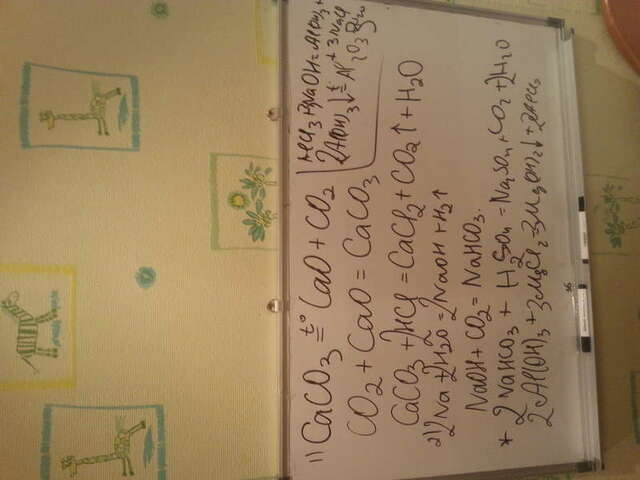 1) CaCO3 t°= CaO + CO2
CO2 + CaO = CaCO3
CaCO3 + 2HCl = CaCl2 + CO2↑ + H2O
2) 2Na + 2H2O = 2NaOH + H2↑
NaOH + CO2 = NaHCO3.
* 2NaHCO3 + H2SO4 = Na2SO4 + CO2 + 2H2O
2Al(OH)3 + 3MgCl2 = 3Mg(OH)2↓ + 2AlCl3
AlCl3 + 3NaOH = Al(OH)3 + 3NaCl
2Al(OH)3↓ t= Al2O3